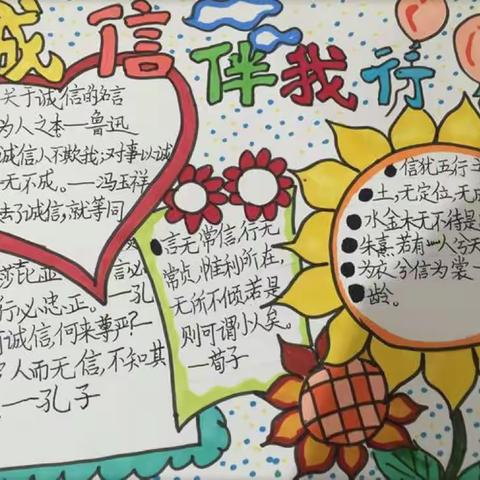 诚信伴我行
关于诚信的名言
为人之本—鲁迅
诚信人不欺我;对事以诚
无不成。—冯玉祥
去了诚信,就等同
莎
言必
行必忠正。—孔
诚信,何来尊严?—
人而无信,不知其
—孔子
言无常信,行无
常贞,惟利所在,
无所不倾若是
则可谓小人矣。
—荀子
信犹五行
土,无定位,无
水金木无不待是
朱熹.若有一人兮天
为衣兮信为裳—
龄。